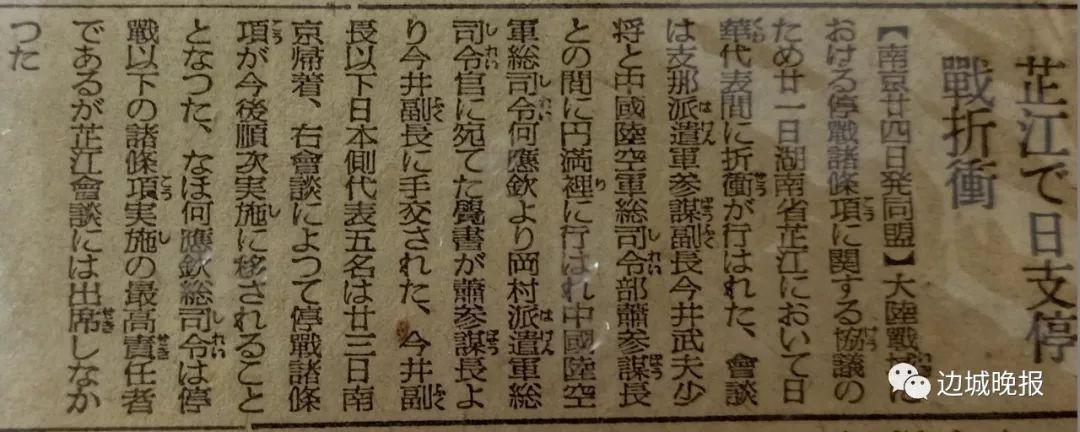 芷江で日支停
戰折衝
【南京廿四日発同盟】大陸戰域に
おける停戰諸條項に関する協議の
ため廿一日湖南省芷江において日
華代表間に折衝が行はれた、會談
は支那派遣軍参謀副長今井武夫少
将と中國陸空軍総司令部蕭参謀長
との間に円満裡に行はれ中國陸空
軍総司令何應欽より岡村派遣軍総
司令官に宛てた覺書が蕭参謀長よ
り今井副長に手交された、今井副
長以下日本側代表五名は廿三日南
京帰着、右會談によつて停戰諸條
項が今後順次実施に移されること
となつた、なほ何應欽総司令は停
戰以下の諸條項実施の最高責任者
であるが芷江會談には出席しなか
つた
边城晚报